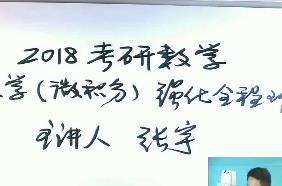 2018 考研数学
学(微积分) 强化全程
主讲人 张宇